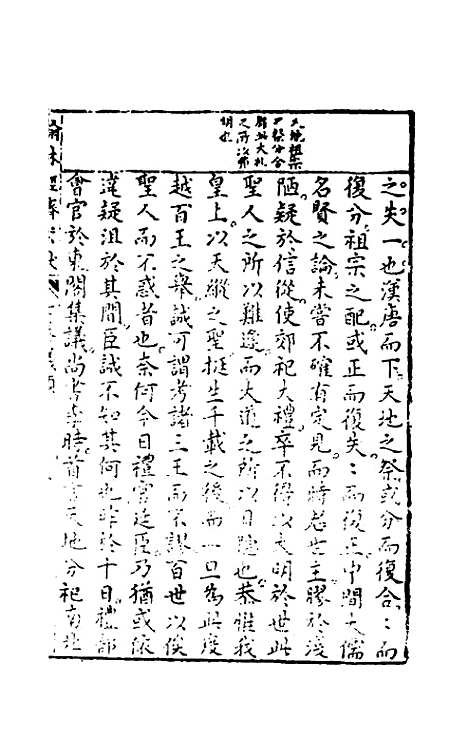 天地祖宗
之祭分合
得此大礼
之所以彰
明也
之失一也漢唐而下天地之祭或分而復合:而
復分祖宗之配或正而復失:而復正中間大儒
名賢之論未嘗不確有定見而時君世主膠於淺
陋疑於信從使郊祀大禮卒不得以大明於世此
聖人之所以難逢而大道之所以日隱也恭惟我
皇上以天縱之聖挺生千載之後而一旦為此度
越百王之舉誠可謂考諸三王而不謬百世以俟
聖人而不惑者也奈何今日禮官廷臣乃猶或依
違疑沮於其間臣誠不知其何也昨於十日禮部
會官於東閣集議尚書李時首言天地分祀南北